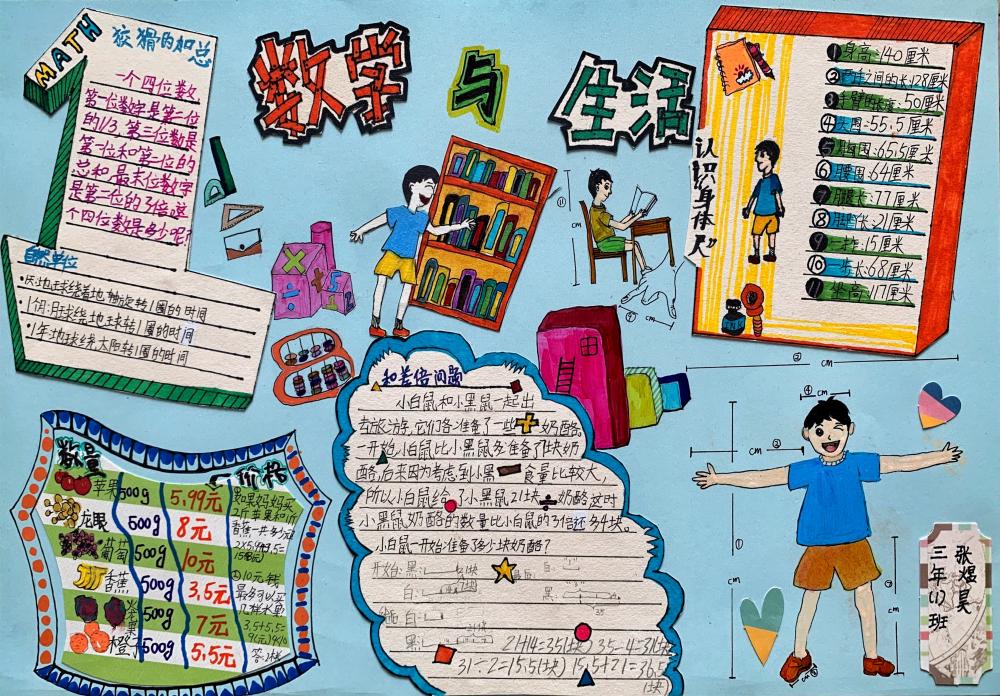 MATH
狡猾的加总
一个四位数
第一位数字是第二位
的1/3,第三位数是
第一位和第二位的
总和,最末位数字
是第二位的3倍,这
个四位数是多少呢?
自然单位
1天:地球绕着地轴旋转1圈的时间
1个月:月球绕地球转1圈的时间
1年:地球绕太阳转1圈的时间
数学与生活
认识身体尺
①身高:140厘米
②两手之间的长:128厘米
③手臂的长度:50厘米
④头围:55.5厘米
⑤胸围:65.5厘米
⑥腰围:64厘米
⑦腿长:77厘米
⑧脚长:21厘米
⑨一拃:15厘米
⑩一步长:68厘米
⑪坐高:117厘米
数量 价格
苹果 500g 5.99元
龙眼 500g 8元
葡萄 500g 10元
香蕉 500g 3.5元
火龙果 500g 7元
橙子 500g 5.5元
如果妈妈买
2斤苹果和1斤
香蕉一共多少元
②10元钱
最多可以买
几样水果
和差倍问题
小白鼠和小黑鼠一起出
去旅游,它们各准备了一些奶酪,
一开始小白鼠比小黑鼠多准备了块奶
酪,后来因为考虑到小黑食量比较大,
所以小白鼠给了小黑鼠21块奶酪这时
小黑鼠奶酪的数量比小白鼠的3倍还多4块。
小白鼠一开始准备了多少块奶酪?
开始:黑:
白:
白:
黑:
21+14=35(块) 35-4=31(块)
31÷2=15.5(块) 15.5+21=36.5
(块)
⑪ cm
cm
② cm
④ cm
② cm
① cm
⑦ cm
cm
张煜昊
三年(1)班